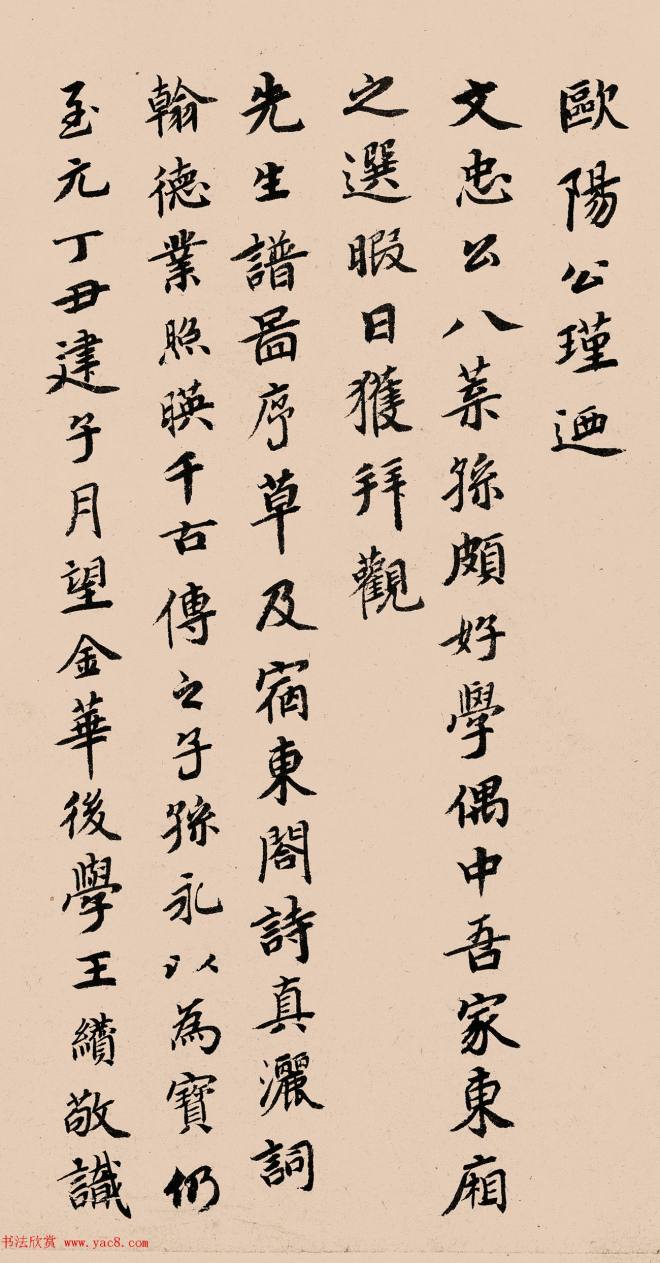 歐陽公瑾迺
文忠公八葉孫頗好學偶中吾家東廂
之選暇日獲拜觀
先生譜啚序草及宿東閣詩真灑詞
翰德業照暎千古傳之子孫永以為寶仍
至元丁丑建子月望金華後學王纘敬識
书法欣赏 www.yac8.com